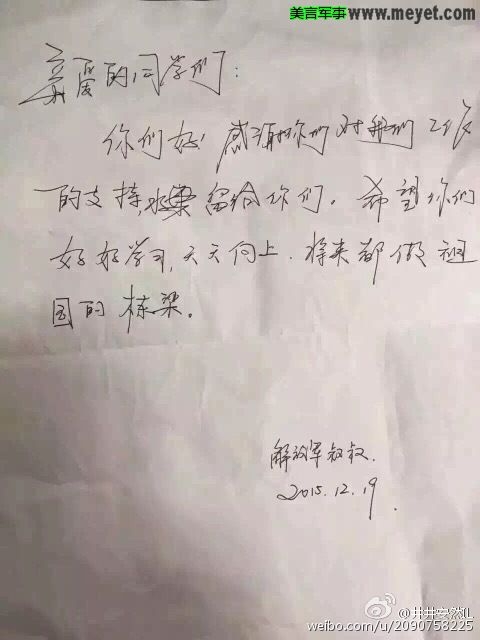 美言军事 www.meyet.com
亲爱的同学们：
你们好！感谢你们对我们工作
的支持，水果留给你们。希望你们
好好学习，天天向上，将来都做祖
国的栋梁。
解放军叔叔.
2015.12.19.
@井井安然IL
weibo.com/u/2090758225